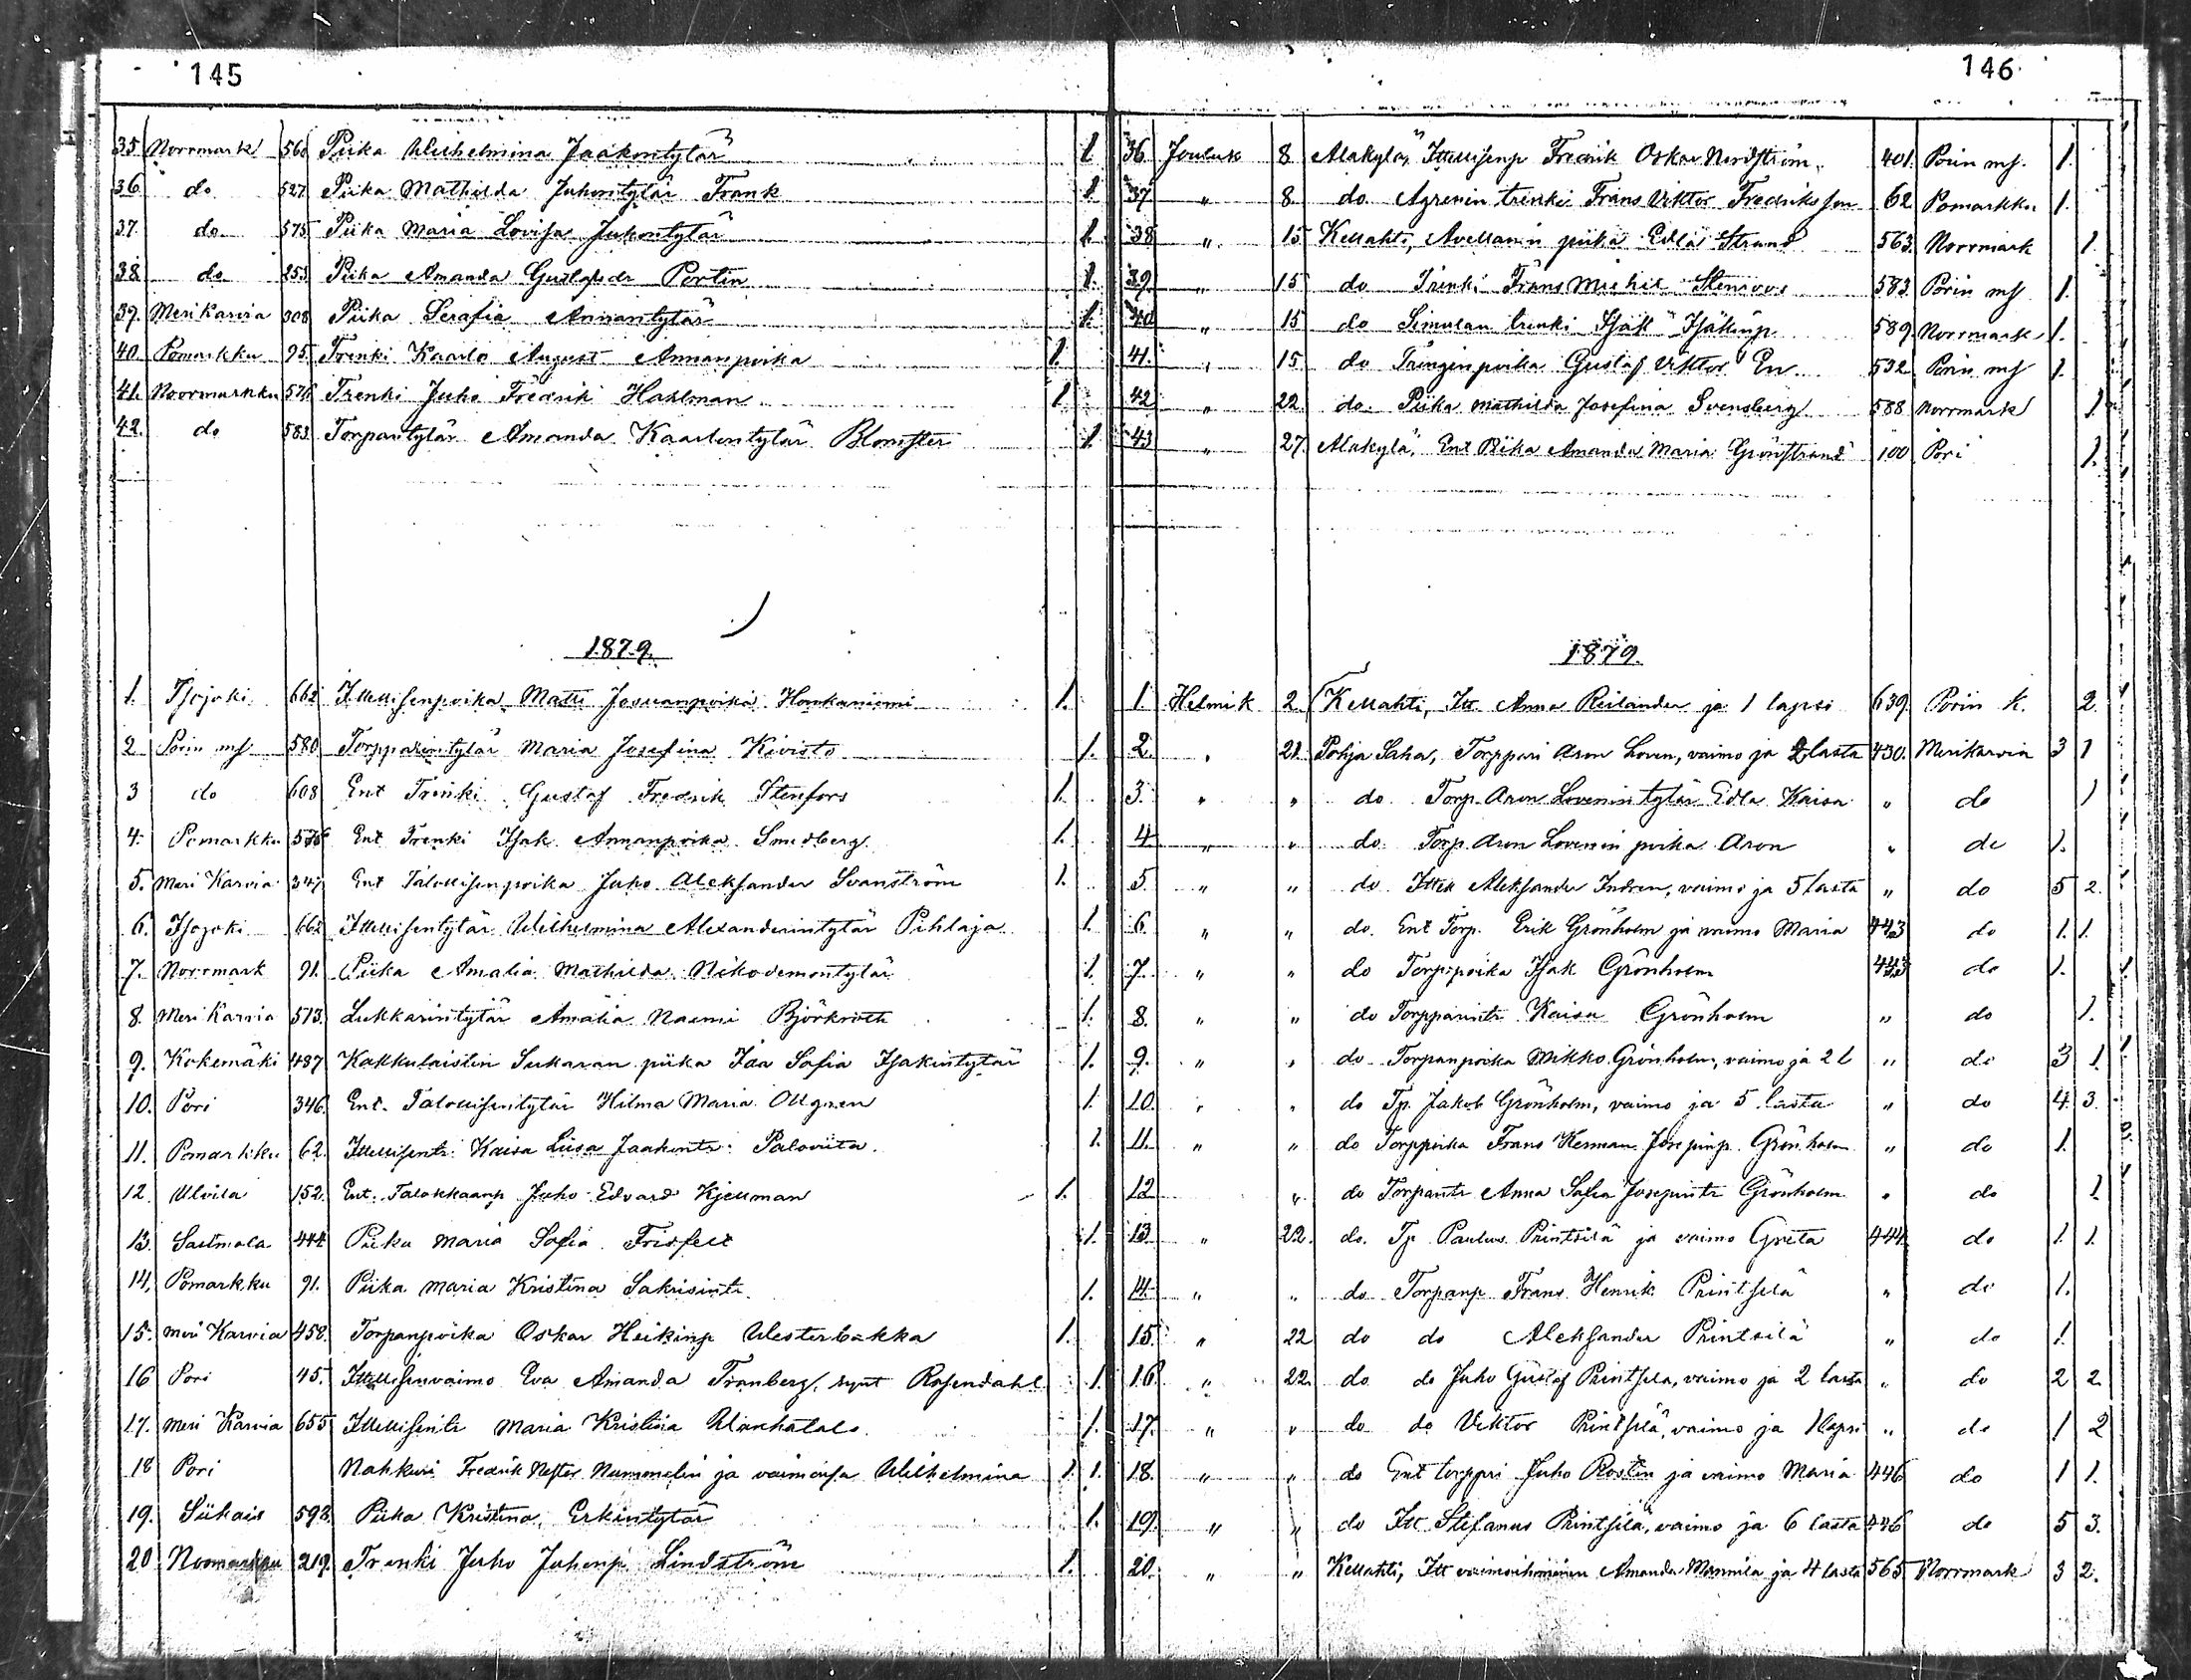 145
35 Norrmark 560 Piika Wilhelmina Jaakontytär 1
36 do 527 Piika Mathilda Juhontytär Frank 1.
37. do 575 Piika Maria Lovisa Juhontytär 1.
38. do 253 Piika Amanda Gustafsdr Portin 1.
39. Merikarvia 308 Piika Serafia Annantytär 1.
40. Pomarkku 95. Trenki Kaarlo August Annanpoika 1.
41. Noormarkku 576 Trenki Juho Fredrik Hahlman 1
42. do 583. Torpantytär Amanda Kaarlontytär Blomster 1
1879.
1. Isojoki 662 Itellisenpoika Matti Josuanpoika Honkaniemi 1.
2 Porin ms 580 Torpparintytär Maria Josefina Kivistö 1.
3 do 608 Ent Trenki Gustaf Fredrik Stenfors 1.
4. Pomarkku 576 Ent Trenki Isak Annanpoika Smedberg. 1.
5. Meri Karvia 347 Ent Talollisenpoika Juho Aleksander Svanström 1.
6. Isojoki 662 Itellisentytär Wilhelmina Alexanderintytär Pihlaja 1.
7. Norrmark 91. Piika Amalia Mathilda Nikodemontytär 1.
8. Meri Karvia 573. Lukkarintytär Amalia Naemi Björkroth 1.
9. Kokemäki 487 Kakkulaistin Sukaran piika Ida Sofia Isakintytär 1.
10. Pori 346. Ent. Talollisentytär Hilma Maria Ollgren 1.
11. Pomarkku 62. Itellisentr. Kaisa Liisa Jaakontr. Paloviita. 1.
12. Ulvila 152. Ent. Talokkaanp Juho Edvard Kjellman 1.
13. Sastmola 444 Piika Maria Sofia Frisfelt 1.
14. Pomarkku 91. Piika Maria Kristina Sakrisintr. 1.
15. Meri Karvia 458. Torpanpoika Oskar Heikinp Westerbakka 1.
16 Pori 45. Itellisenvaimo Eva Amanda Tranberg, synt Rosendahl 1.
17. Meri Karvia 655 Itellisentr Maria Kristina 1.
18 Pori Nahkuri Fredrik Nestor Nummelin ja vaimonsa Wilhelmina 1. 1.
19. Siikais 598. Piika Kristina Erkintytär 1.
20 Noormarkku 219. Trenki Juho Juhonp Lindström 1.
146
36. Jouluk 8 Alakylä, Itellisenp Fredrik Oskar Nordström. 401. Porin ms. 1.
37 " 8. do Agrenin trenki Frans Viktor Fredriksson 62 Pomarkku 1.
38 " 15 Kellahti, Avellanin piika Edla Strand 563. Norrmark 1.
39. " 15 do Trenki Frans Mickel Stenroos 583. Porin ms 1.
40 " 15 do Simulan trenki Isak Isakinp. 589. Norrmark 1.
41. " 15 do Trengin poika Gustaf Viktor En 532 Porin ms 1.
42 " 22. do. Piika Mathilda Josefina Svensberg 588. Norrmark 1
43 " 27. Alakylä, Ent Piika Amanda Maria Grönstrand 100 Pori 1.
1879.
1. Helmik 2. Kellahti, Itt Anna Reilander ja 1 lapsi 639. Porin k. 2.
2. " 21. Pohja Saha, Torppari Aron Loven, vaimo ja 2 lasta 430. Merikarvia 3 1
3. " " do. Torp. Aron Lovenin tytär Edla Kaisa " do 1
4 " " do. Torp. Aron Lovenin poika Aron " do 1.
5 " " do. Itten Aleksander Indren, vaimo ja 5 lasta " do 5 2.
6 " " do. Ent Torp. Erik Grönholm ja vaimo Maria 443 do 1. 1.
7. " " do Torp.poika Isak Grönholm 443 do 1.
8. " " do Torpparintr Kaisa Grönholm " do 1.
9. " " do Torpanpoika Mikko Grönholm, vaimo ja 2 l " do 3 1.
10. " " do Tp. Jakob Grönholm, vaimo ja 5 lasta " do 4. 3.
11. " " do Torppoika Frans Herman Josepinp. Grönholm " do 1.
12 " do Torpantr Anna Sofia Josepintr Grönholm " do 1.
13. " 22. do. Tp. Paulus Printsilä ja vaimo Greta 444 do 1. 1.
14. " " do Torpanp Frans Henrik Printsilä " do 1.
15. " 22 do do Aleksander Printsilä " do 1.
16. " 22. do do Juho Gustaf Printsilä, vaimo ja 2 lasta " do 2 2.
17. " " do do Viktor Printsilä, vaimo ja 1 lapsi " do 1 2
18. " " do Ent torppri Juho Rostin ja vaimo Maria 446 do 1 1.
19. " " do Itt Stefanus Printsilä, vaimo ja 6 lasta 446 do 5 3.
20. " " Kellahti, Itt vaimoihminen Amanda Mannila ja 4 lasta 565 Norrmark 3 2.